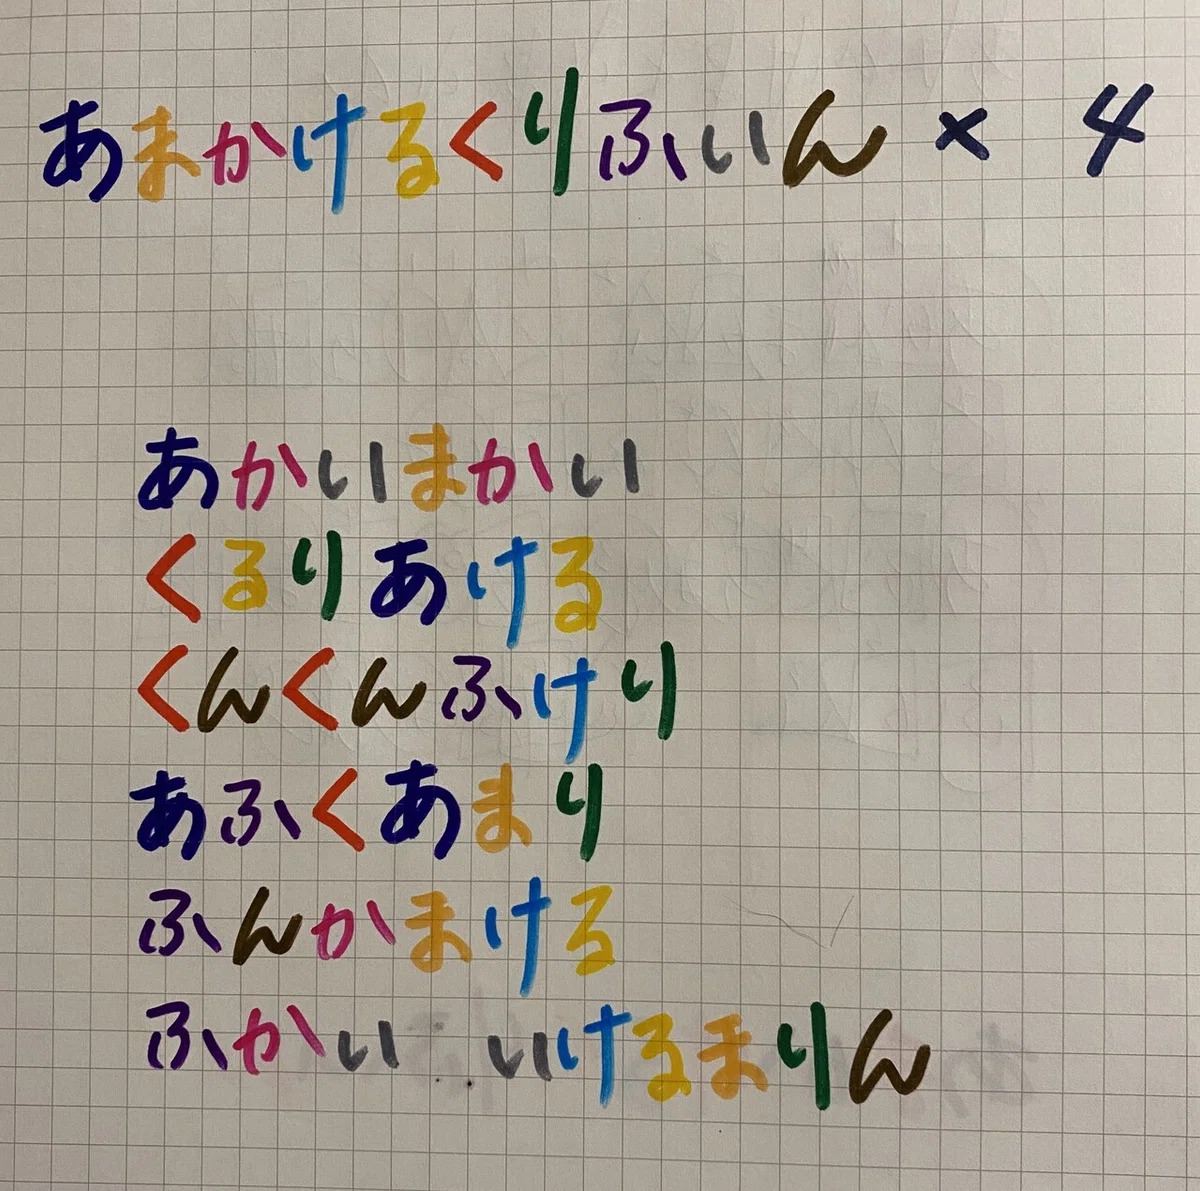 あまかけるくりふいん × 4
あかいまかい
くるりあける
くんくんふけり
あふくあまり
ふんかまける
ふかい いけるまりん